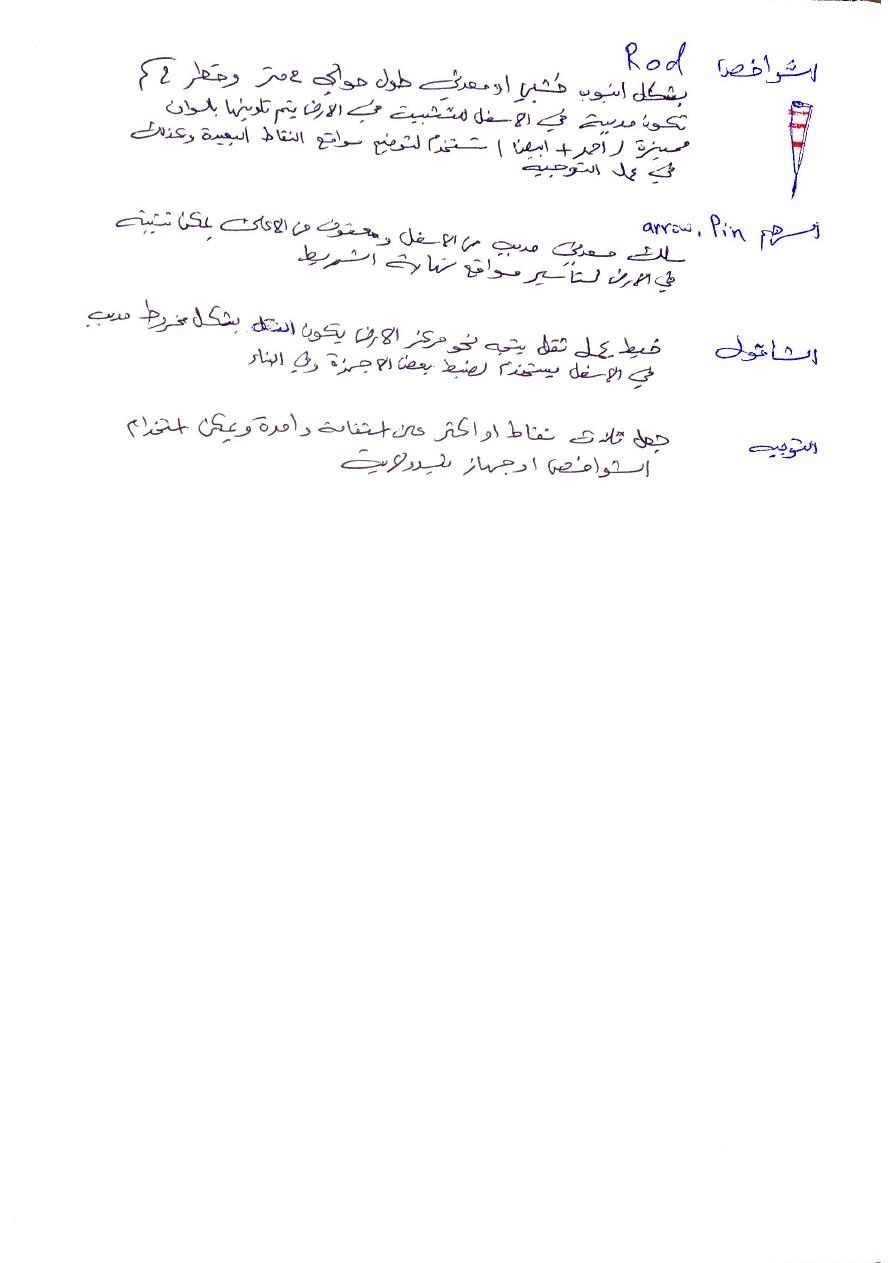 الشواخص Rod
بشكل انبوب خشبي او معدني طول حوالي ٢ متر وقطر ٢ سم
تكون مدببة في الاسفل للتثبيت في الارض يتم تلوينها بالوان
مميزة (احمر + ابيض) تستخدم لتوضيح مواقع النقاط البعيدة وكذلك
في عمل التوجيه
السهم arrow, Pin
سلك معدني مدبب من الاسفل ومعقوف من الاعلى يمكن تثبيته
في الارض لتأشير مواقع نهاية الشريط
الشاقول
خيط يحمل ثقل يتجه نحو مركز الارض يكون الثقل بشكل مخروط مدبب
في الاسفل يستخدم لضبط بعض الاجهزة وفي البناء
التوجيه
جعل ثلاث نقاط او اكثر على استقامة واحدة ويمكن استخدام
الشواخص او جهاز ثيودولايت